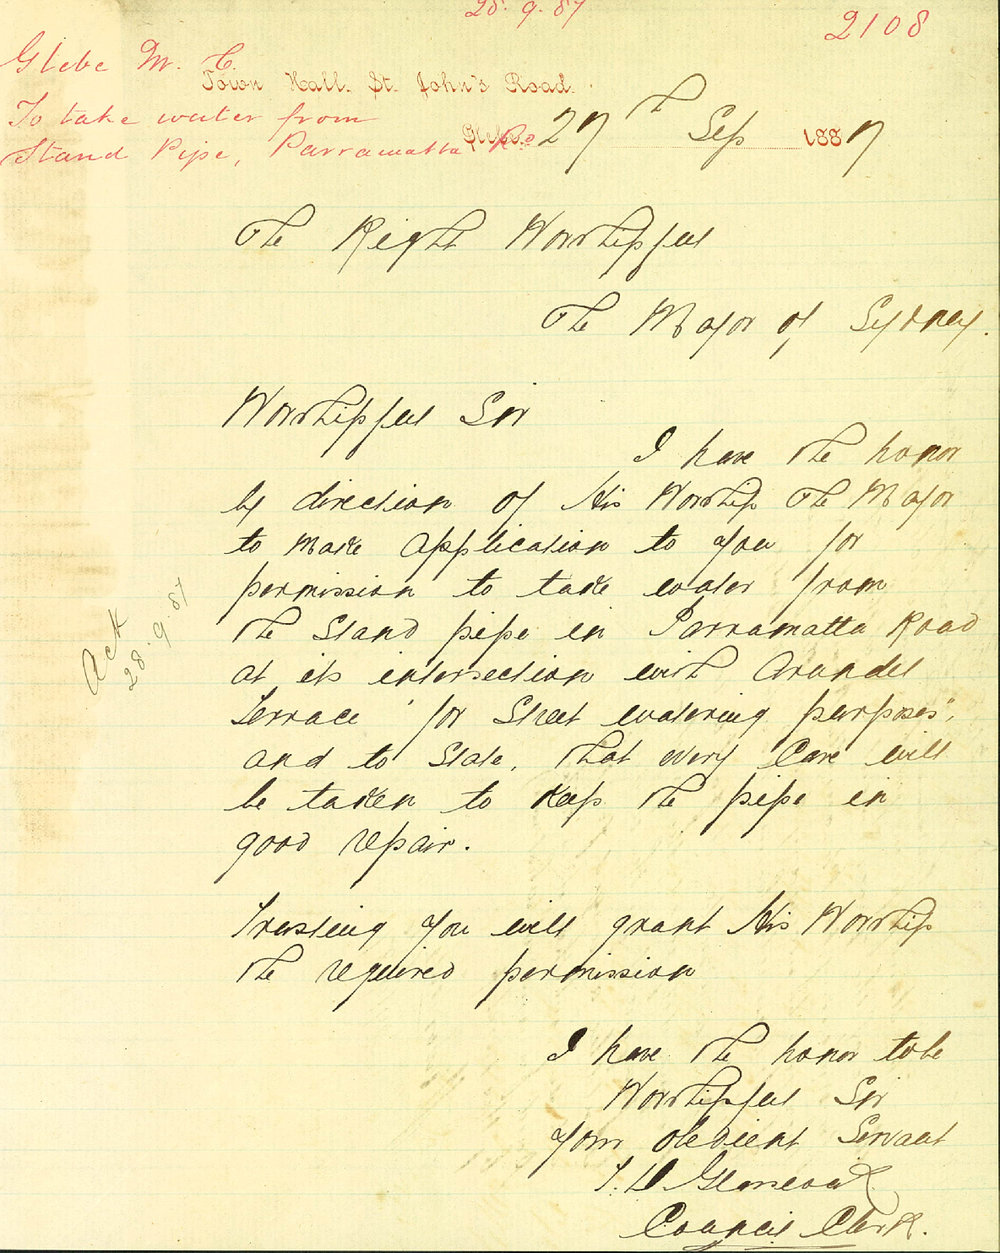 28.9.87
2108
Glebe M. C.
Town Hall. St. John's Road.
To take water from
Stand Pipe, Parramatta Rd
Glebe. 27th Sep 1887
The Right Worshipful
The Mayor of Sydney.
Worshipful Sir
I have the honor
by direction of His Worship The Mayor
to make application to you for
permission to take water from
the Stand pipe in Parramatta Road
at its intersection with Arundel
Terrace "for Street watering purposes",
and to State, that every Care will
be taken to Keep the pipe in
good repair.
Ack
28.9.87
Trusting you will grant His Worship
the required permission
I have the honor to be
Worshipful Sir
Your obedient Servant
Council Clerk.